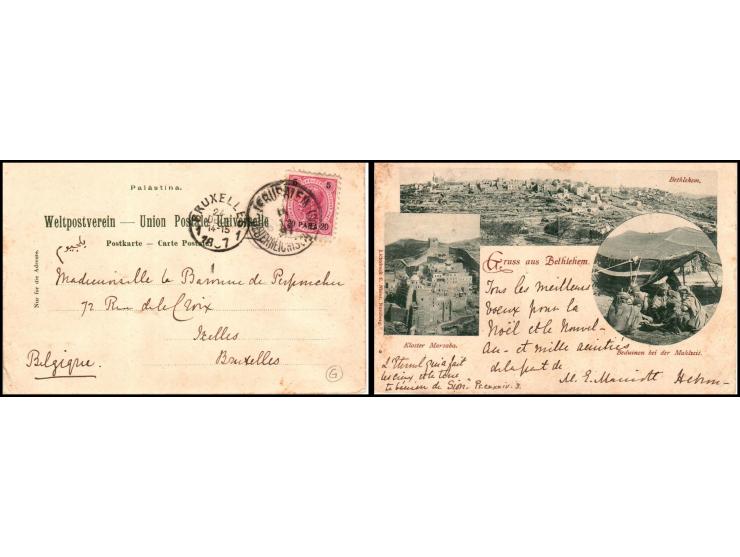 Palästina.
Weltpostverein — Union Postale Universelle
Postkarte — Carte Postale
Nur für die Adresse.
BRUXELLES
24
14-15
JERUSALEM
20 PARA 20
Mademoiselle la Baronne de
72 Rue de la Croix
Ixelles
Bruxelles
Belgique.
G
Bethlehem.
Gruss aus Bethlehem.
Kloster Marsaba.
Beduinen bei der Mahlzeit.
Tous les meilleurs
voeux pour la
Noël et le Nouvel-
An - et mille amitiés
de la part de
M. E. Marriott Hebron-
L'Eternel qui a fait
les cieux et la terre
te bénira de Sion. Ps. cxxxiv. 3.